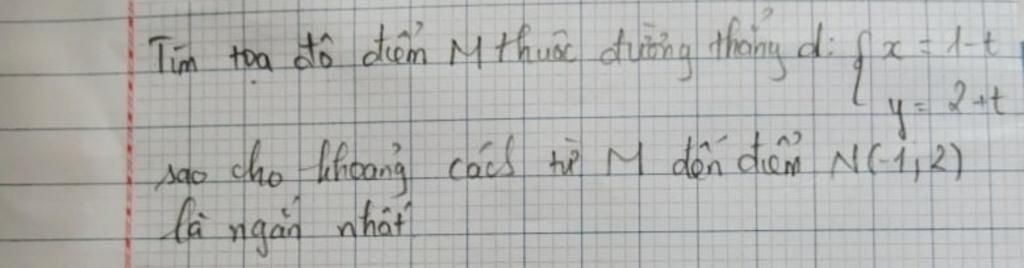 Tìm tọa độ điểm M thuộc đường thẳng d: { x = 1-t
y = 2+t
sao cho khoảng cách từ M đến điểm N(-1;2)
là ngắn nhất